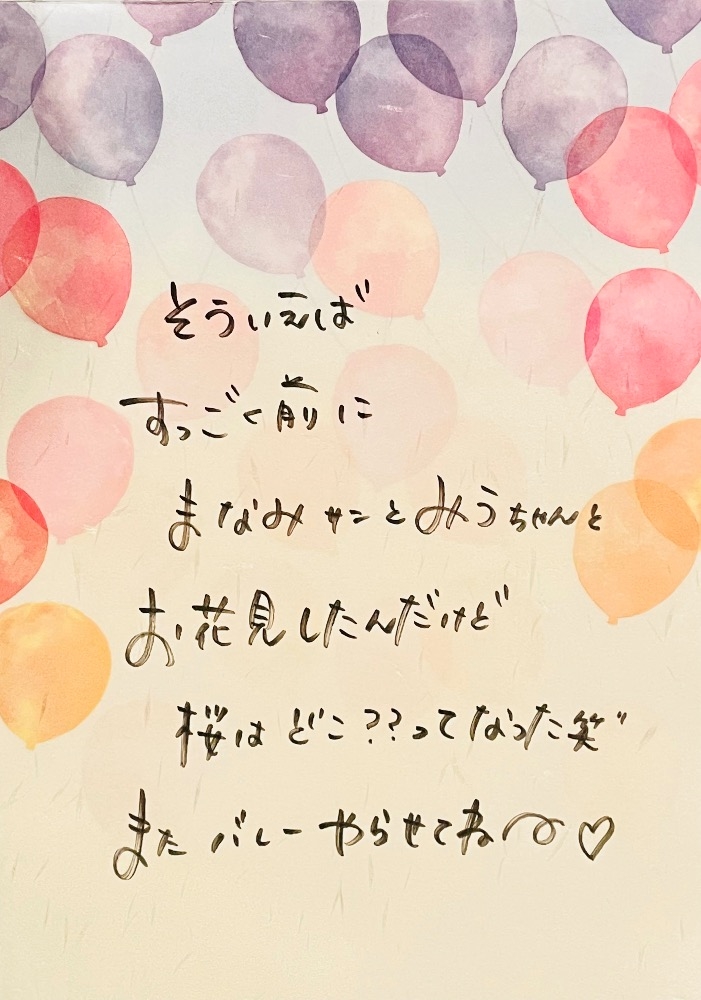 そういえば
すっごく前に
まなみサンとみうちゃんと
お花見したんだけど
桜はどこ??ってなった笑"
またバレーやらせてね〜♡